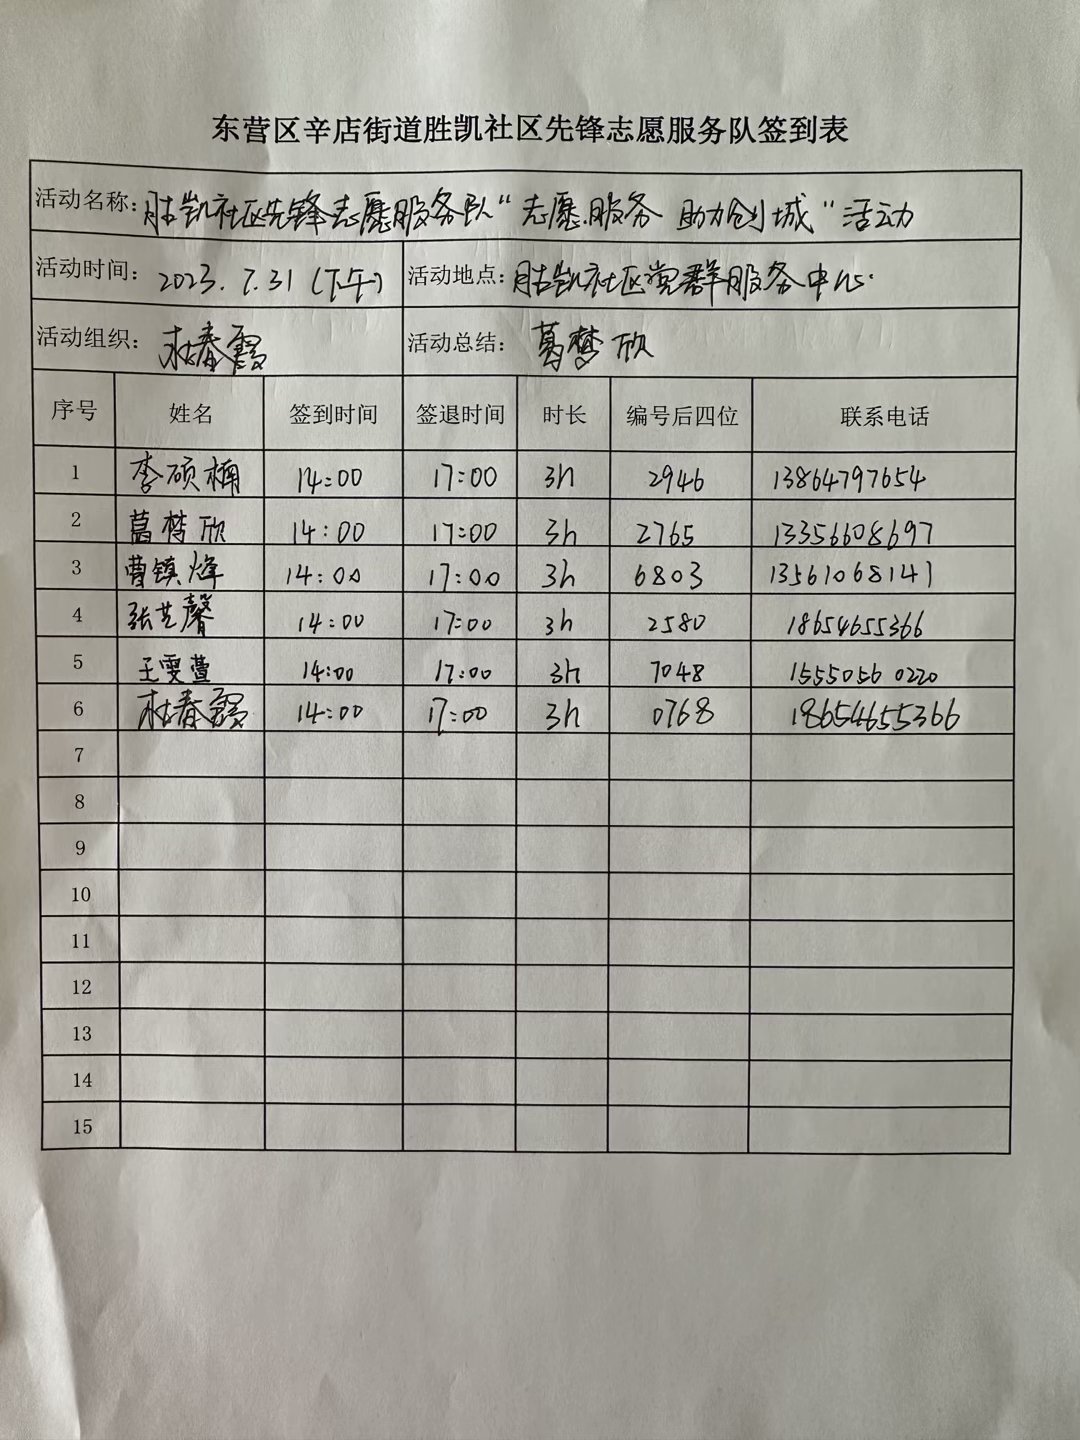 东营区辛店街道胜凯社区先锋志愿服务队签到表
活动名称：胜凯社区先锋志愿服务队“志愿服务 助力创城”活动
活动时间：2023.7.31（下午） 活动地点：胜凯社区党群服务中心.
活动组织：杜春霞 活动总结：葛梦欣
序号 姓名 签到时间 签退时间 时长 编号后四位 联系电话
1 李硕楠 14:00 17:00 3h 2946 13864797654
2 葛梦欣 14:00 17:00 3h 2765 13356608697
3 曹镇烽 14:00 17:00 3h 6803 13561068141
4 张艺馨 14:00 17:00 3h 2580 18654655366
5 王雯萱 14:00 17:00 3h 7048 15550560220
6 杜春霞 14:00 17:00 3h 0768 18654655366
7
8
9
10
11
12
13
14
15